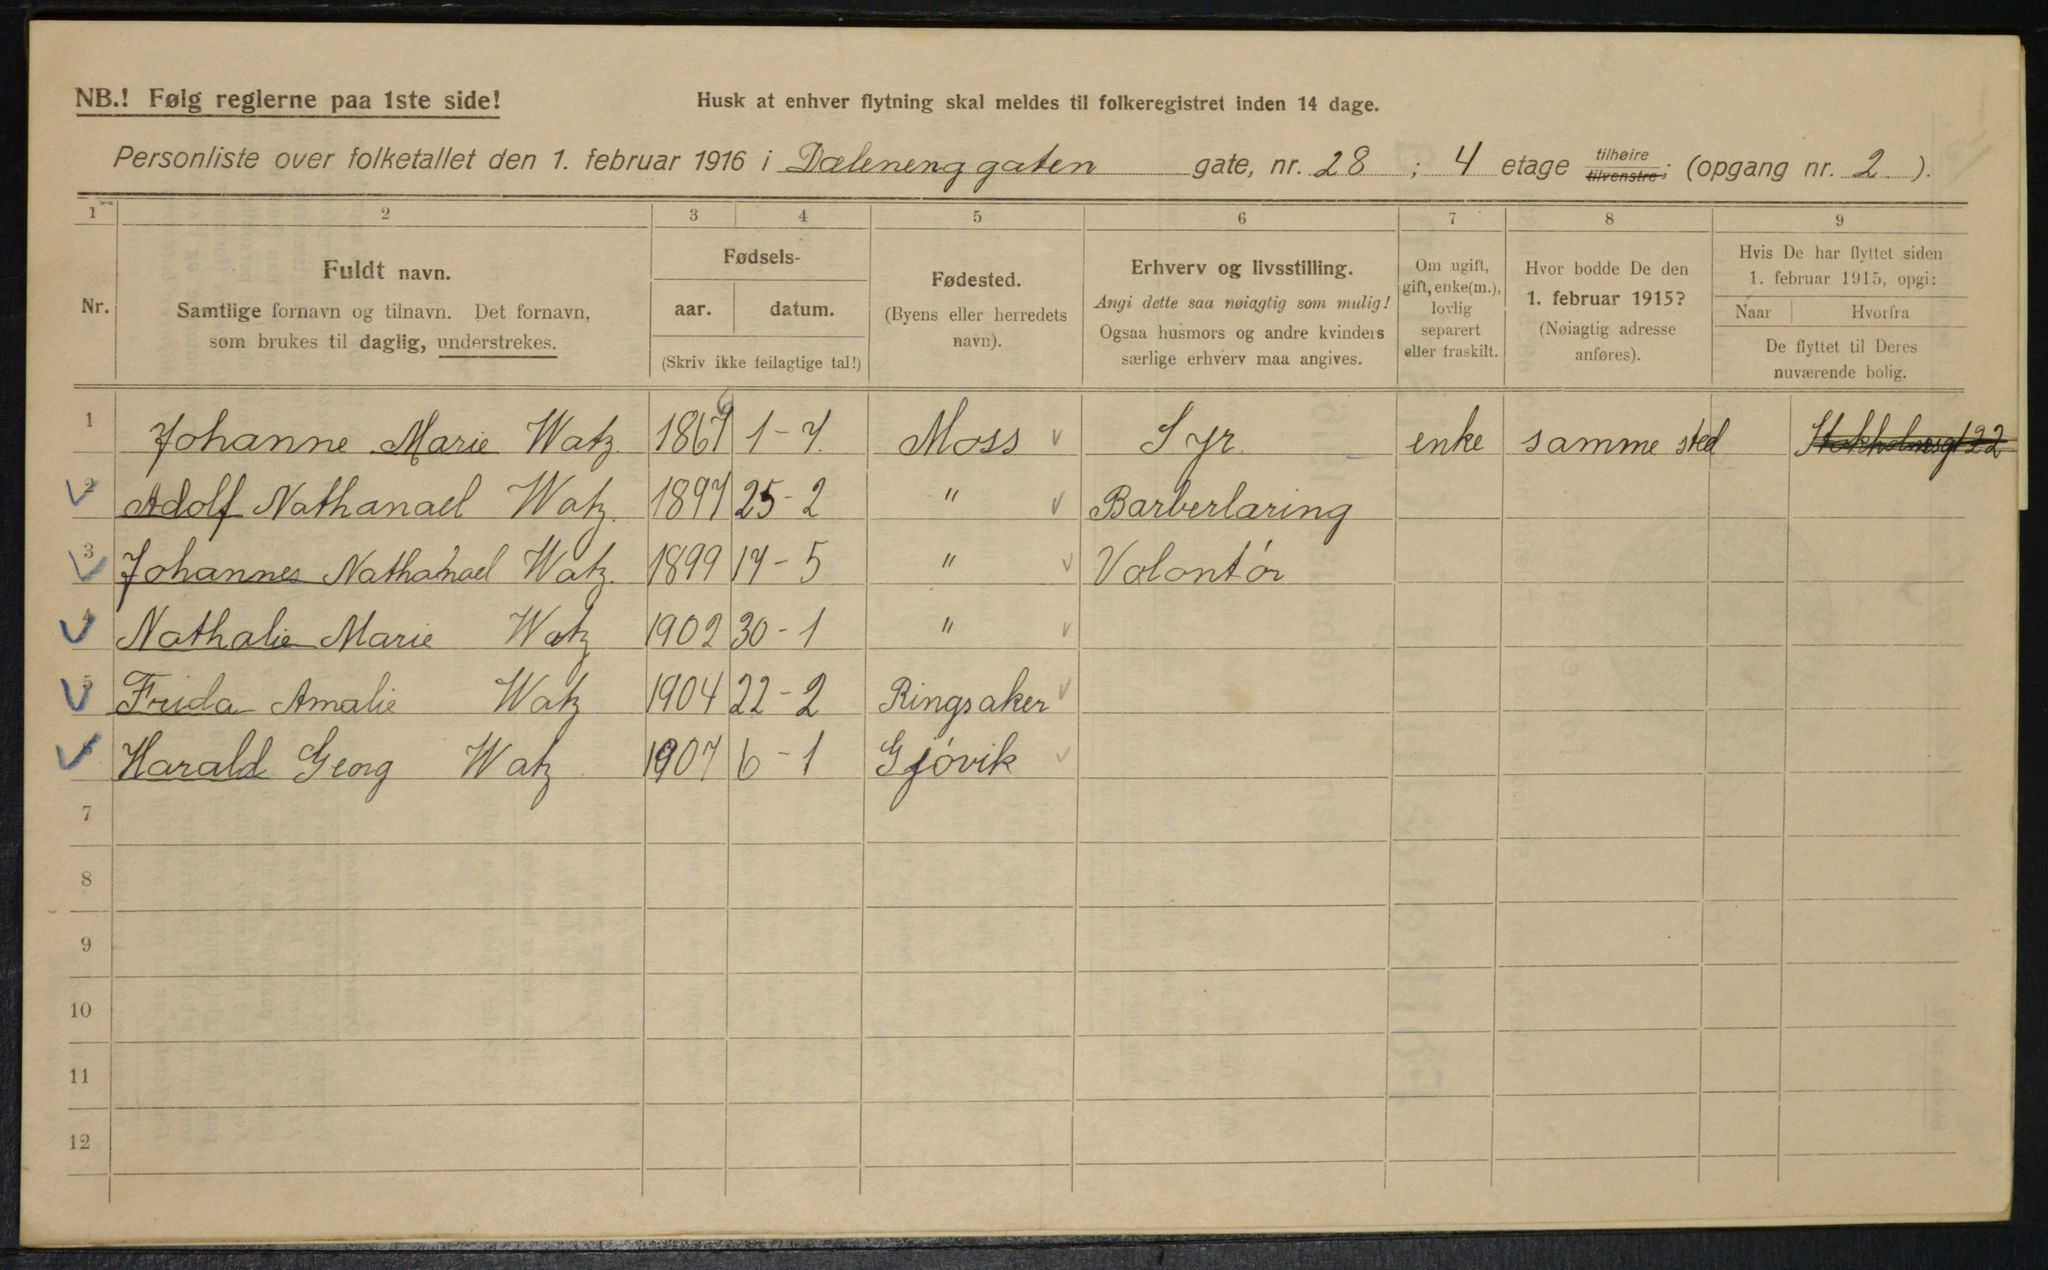 NB.! Følg reglerne paa 1ste side!
Husk at enhver flytning skal meldes til folkeregistret inden 14 dage.
Personliste over folketallet den 1. februar 1916 i Dælenenggaten gate, nr. 28 ; 4 etage tilhøire tilvenstre; (opgang nr. 2 ).
1 2 3 4 5 6 7 8 9
Nr.
Fuldt navn.
Samtlige fornavn og tilnavn. Det fornavn,
som brukes til daglig, understrekes.
Fødsels-
aar. datum.
(Skriv ikke feilagtige tal!)
Fødested.
(Byens eller herredets
navn).
Erhverv og livsstilling.
Angi dette saa nøiagtig som mulig!
Ogsaa husmors og andre kvinders
særlige erhverv maa angives.
Om ugift,
gift, enke(m.),
lovlig
separert
eller fraskilt.
Hvor bodde De den
1. februar 1915?
(Nøiagtig adresse
anføres).
Hvis De har flyttet siden
1. februar 1915, opgi:
Naar Hvorfra
De flyttet til Deres
nuværende bolig.
1 Johanne Marie Watz. 1-7. Moss Syr. enke samme sted Stokholmsgt 22
2 Adolf Nathanael Watz. 1897 25-2 " Barberlæring
3 Johannes Nathanael Watz. 1899 17-5 " Volontör
4 Nathalie Marie Watz 1902 30-1 "
5 Frida Amalie Watz 1904 22-2 Ringsaker
6 Harald Georg Watz 1907 6-1 Gjövik
7
8
9
10
11
12